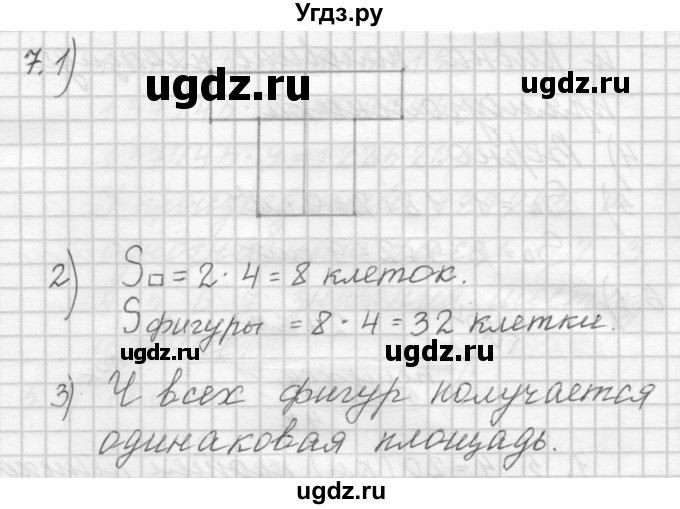 Угдз.ру
7.1)
ugdz.ru
ugdz.ru
2) S□ = 2 · 4 = 8 клеток.
Sфигуры = 8 · 4 = 32 клетки.
ugdz.ru
ugdz.ru
3) У всех фигур получается
одинаковая площадь.
ugdz.ru